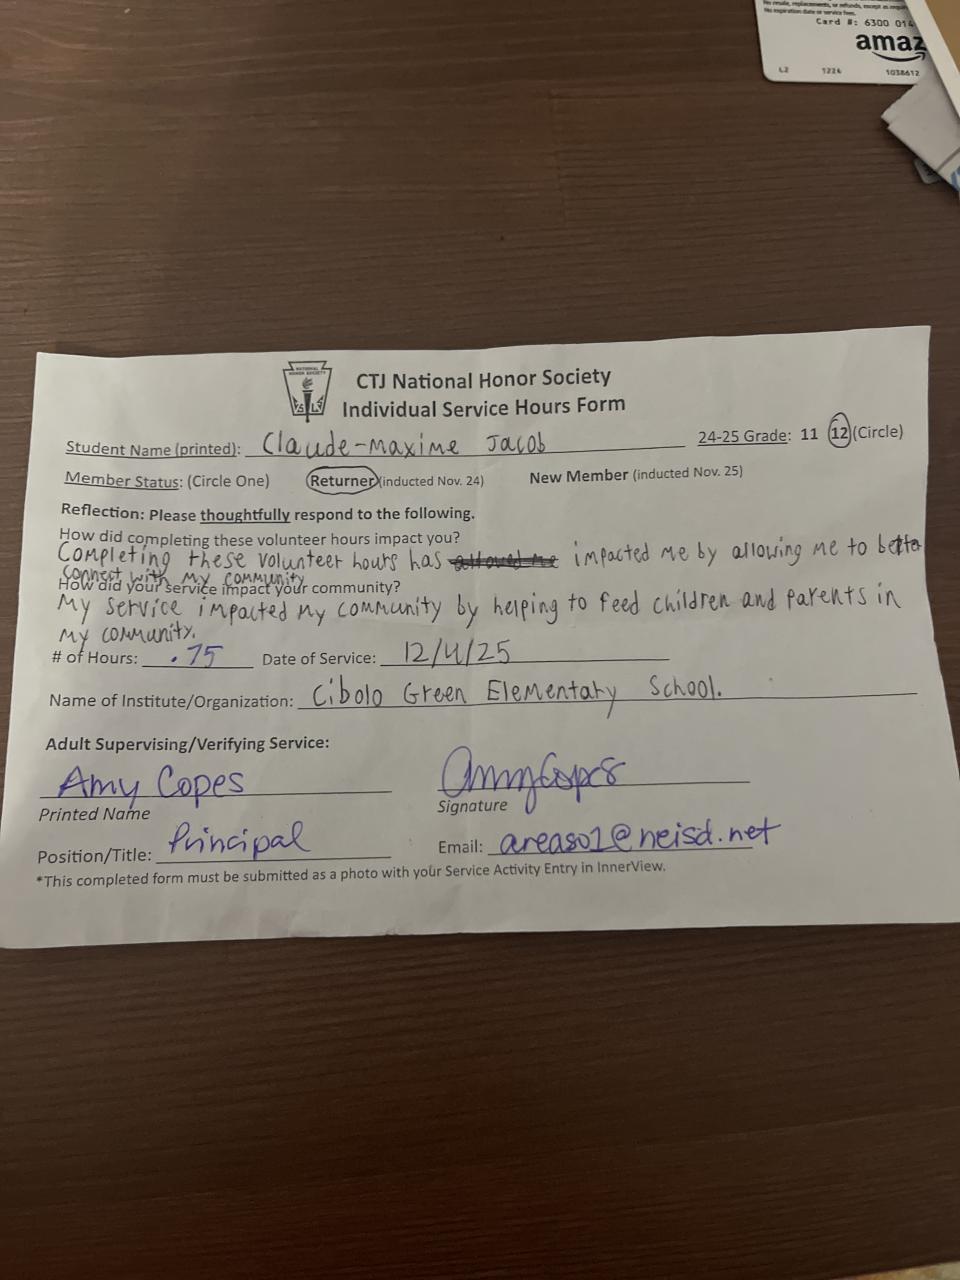 No resale, replacements, or refunds, except as requir
No expiration date or service fees.
Card #: 6300 014
amaz
L2 1226 1038612
NATIONAL
HONOR SOCIETY
CTJ National Honor Society
Individual Service Hours Form
Student Name (printed): Claude-Maxime Jacob 24-25 Grade: 11 12 (Circle)
Member Status: (Circle One) Returner (inducted Nov. 24) New Member (inducted Nov. 25)
Reflection: Please thoughtfully respond to the following.
How did completing these volunteer hours impact you?
Completing these volunteer hours has allowed me impacted me by allowing me to better
connect with my community
How did your service impact your community?
My service impacted my community by helping to feed children and parents in
my community.
# of Hours: .75 Date of Service: 12/4/25
Name of Institute/Organization: Cibolo Green Elementary School.
Adult Supervising/Verifying Service:
Amy Copes Amy Copes
Printed Name Signature
Position/Title: Principal Email: areaso1@neisd.net
*This completed form must be submitted as a photo with your Service Activity Entry in InnerView.